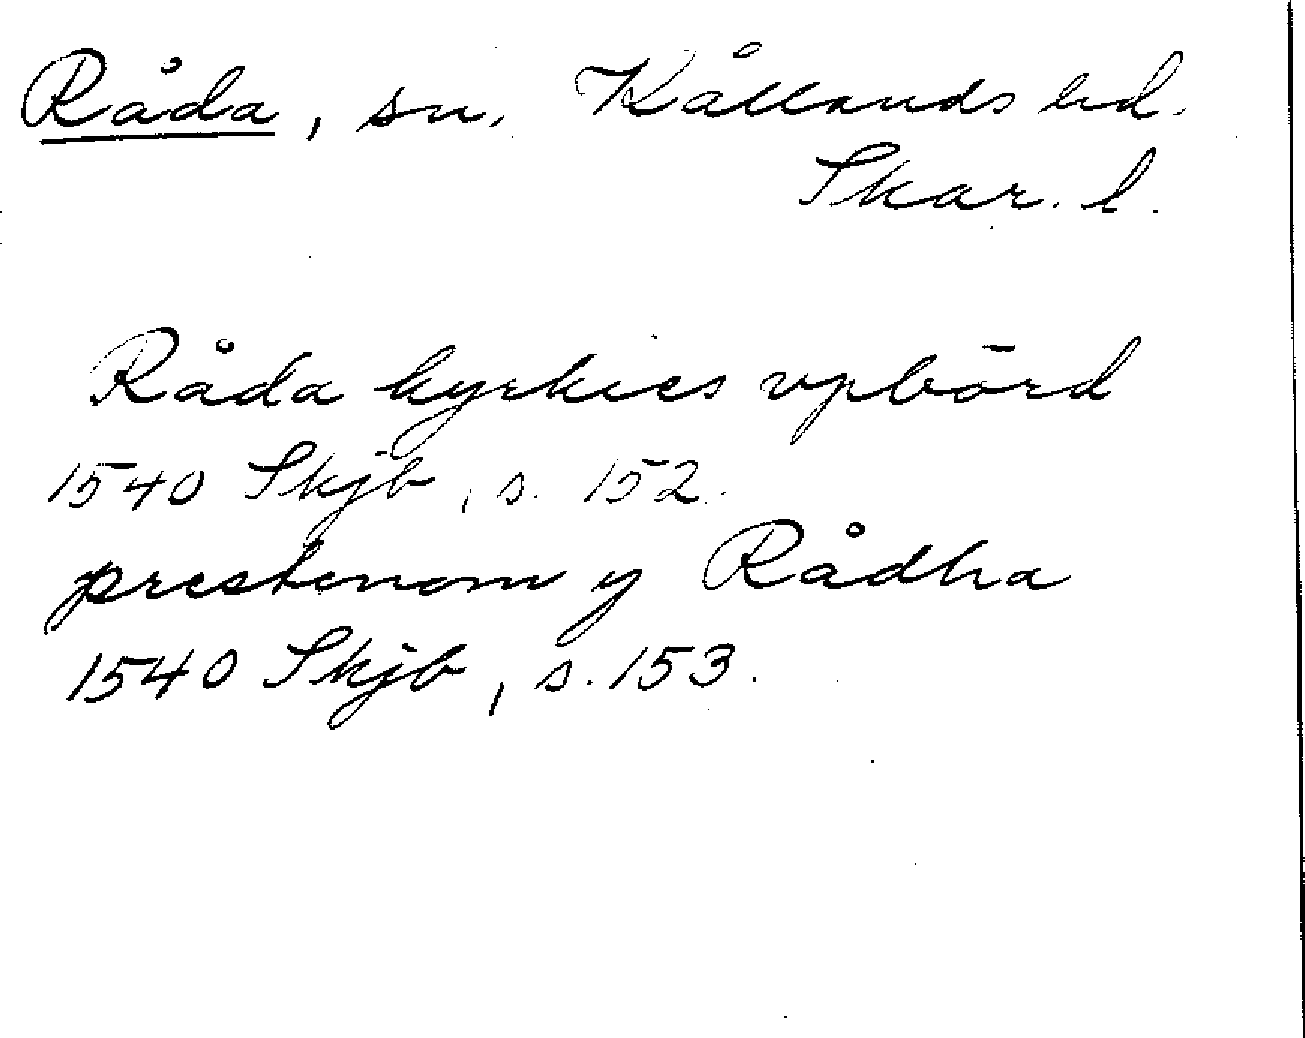 Råda, sn. Kållands hd.
Skar. l.
Råda kyrkies vpbörd
1540 Skjb, s. 152.
prestenom y Rådha
1540 Skjb, s. 153.